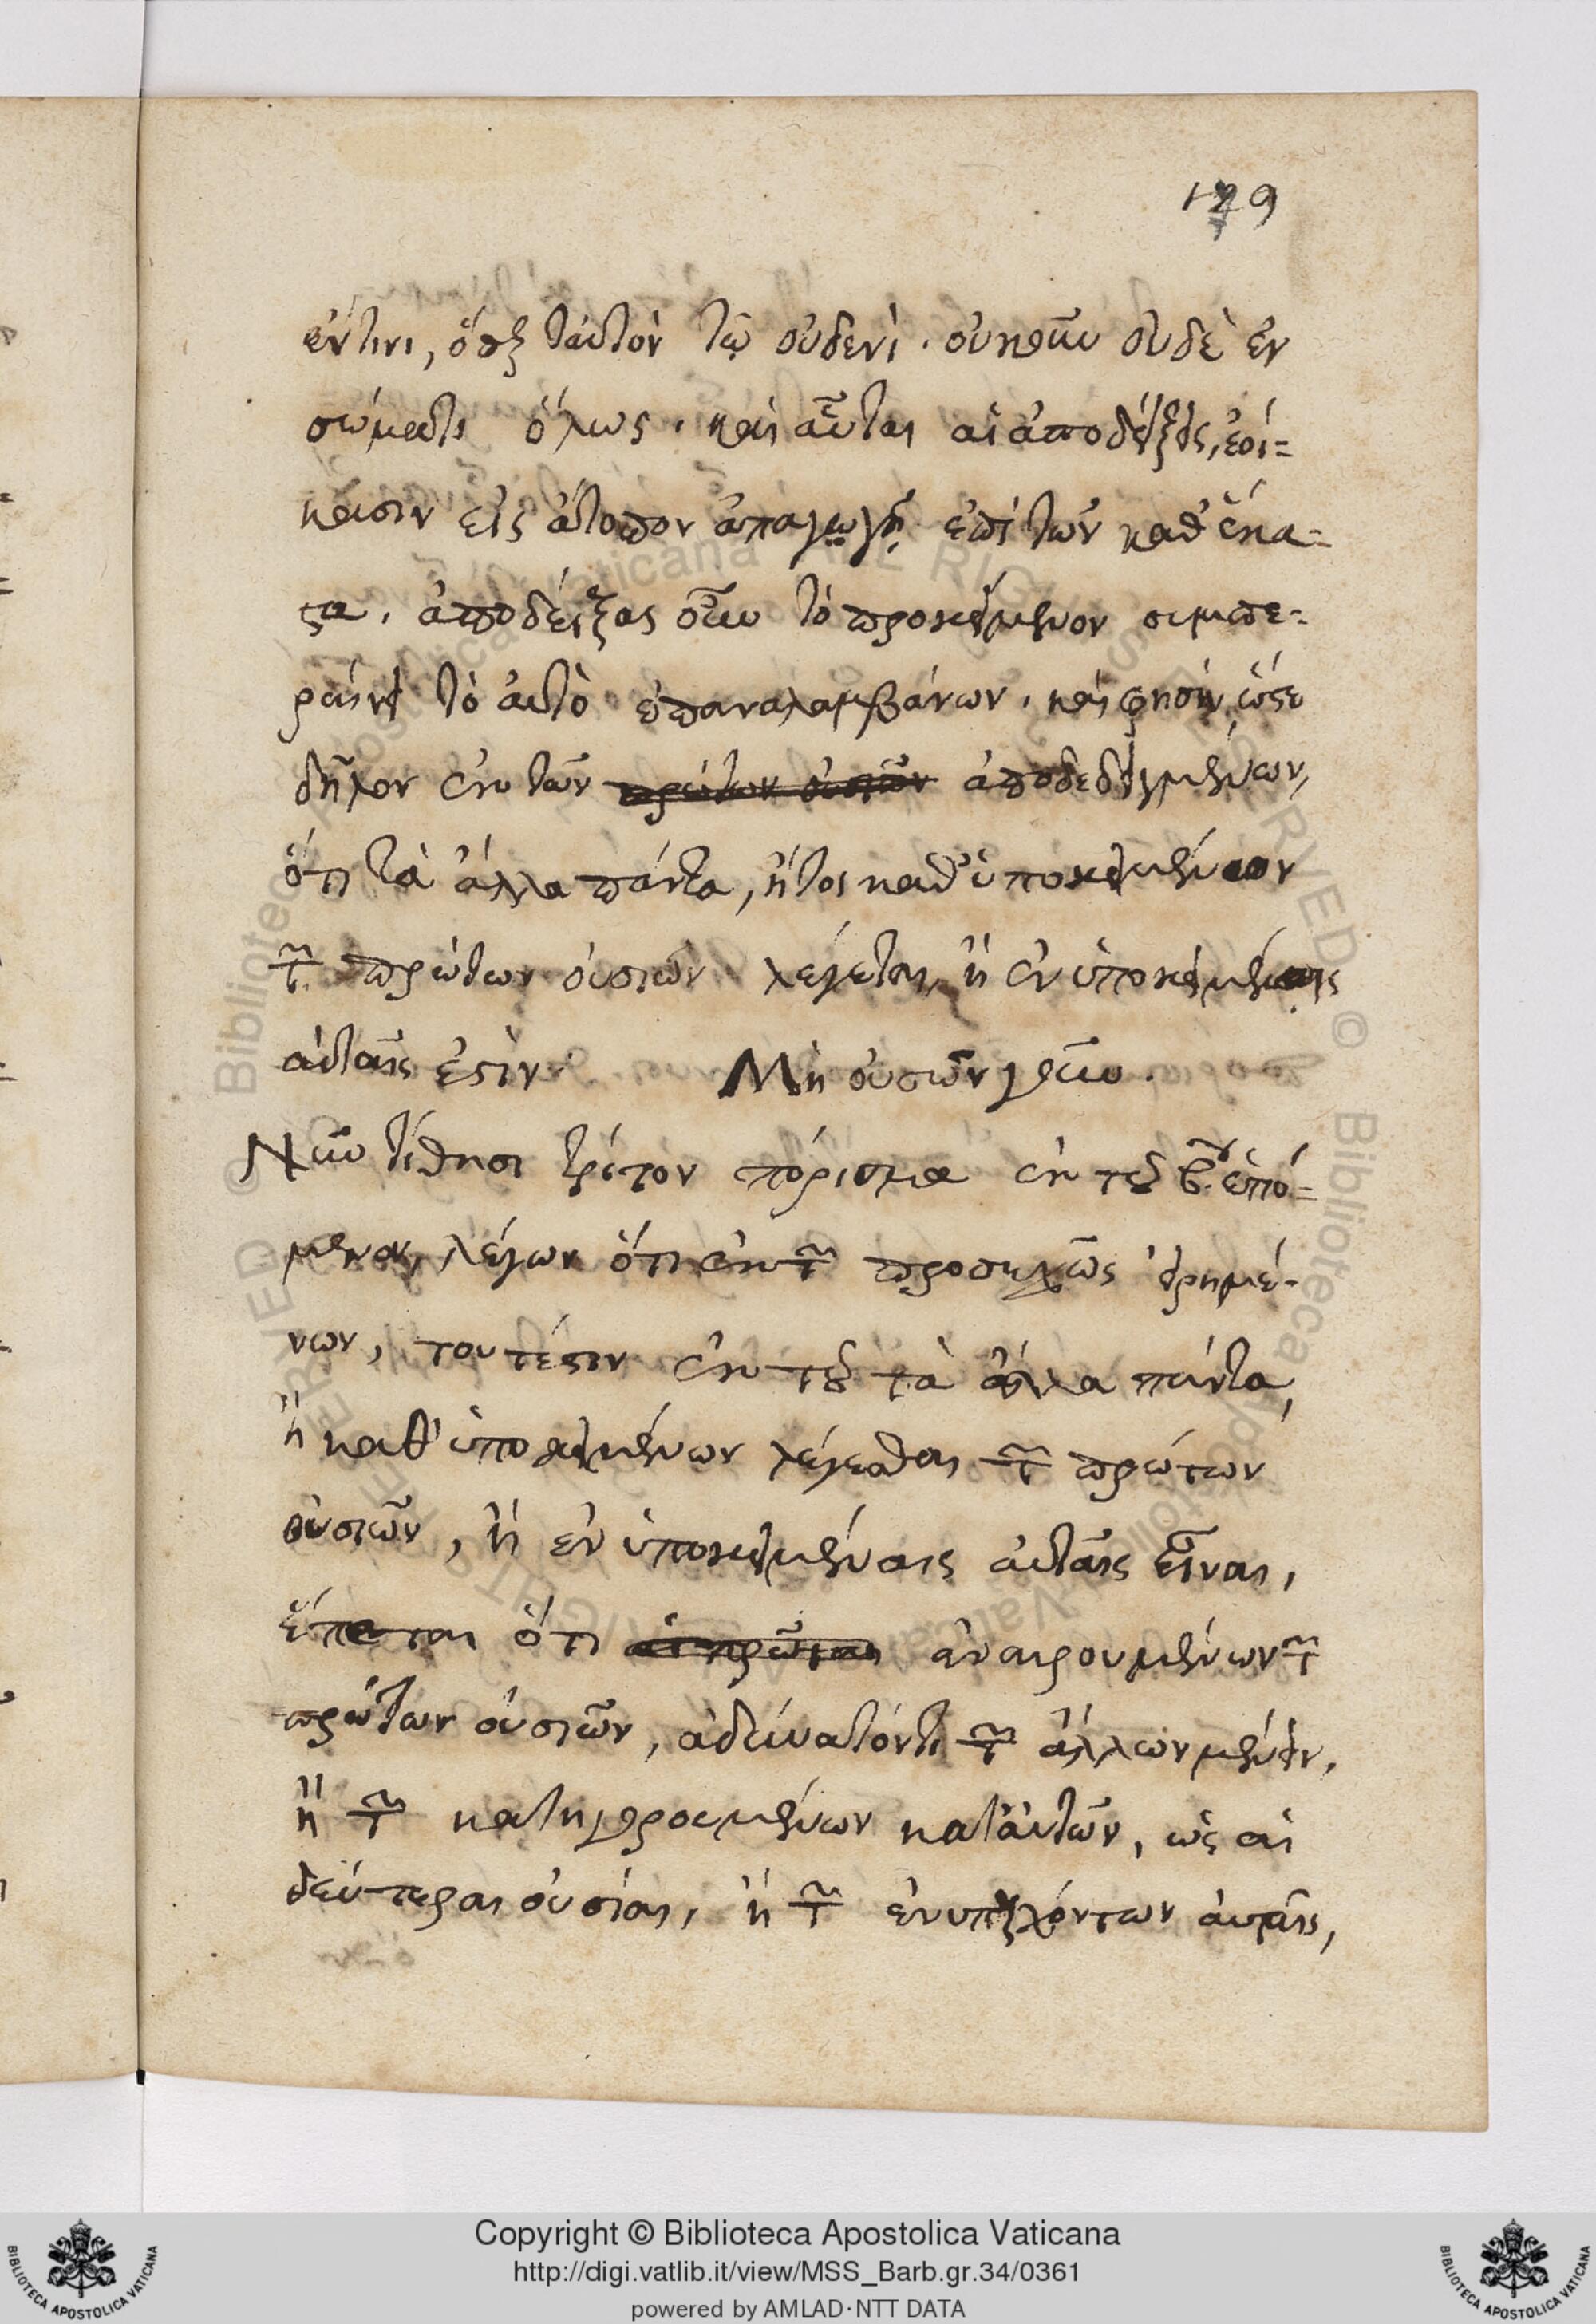 179
ἔν τινι, ὅπερ ταὐτὸν τῷ οὐδενὶ. οὐκοῦν οὐδὲ ἐν
σώματι ὅλως. καὶ αὗται αἱ ἀποδείξεις, ἐοί=
κασιν εἰς ἄτοπον ἀπαγωγῇ ἐπὶ τῶν καθ' ἕκα=
στα. ἀποδείξας οὖν τὸ προκείμενον συμπε=
ραίνει τὸ αὐτὸ ἐπαναλαμβάνων. καί φησιν, ὥστε
δῆλον ἐκ τῶν πρώτων οὐσιῶν ἀποδεδειγμένων,
ὅτι τὰ ἄλλα πάντα, ἤτοι καθ' ὑποκειμένων
τῶν πρώτων οὐσιῶν λέγεται, ἢ ἐν ὑποκειμέναις
αὐταῖς ἐστὶν. Μὴ οὐσῶν γοῦν.
Νῦν τίθησι τρίτον πόρισμα ἐκ τοῦ βου ἑπό=
μενον, λέγων ὅτι ἐκ τῶν προσεχῶς εἰρημέ-
νων, τουτέστιν ἐκ τοῦ τὰ ἄλλα πάντα,
ἢ καθ' ὑποκειμένων λέγεσθαι τῶν πρώτων
οὐσιῶν, ἢ ἐν ὑποκειμέναις αὐταῖς εἶναι,
ἕπεται ὅτι αἱ πρῶται ἀναιρουμένων τῶν
πρώτων οὐσιῶν, ἀδύνατόν τι τῶν ἄλλων μένειν,
ἢ τῶν κατηγορουμένων κατ' αὐτῶν, ὡς αἱ
δεύτεραι οὐσίαι, ἢ τῶν ἐνυπαρχόντων αὐταῖς,
Copyright © Biblioteca Apostolica Vaticana
http://digi.vatlib.it/view/MSS_Barb.gr.34/0361
powered by AMLAD·NTT DATA